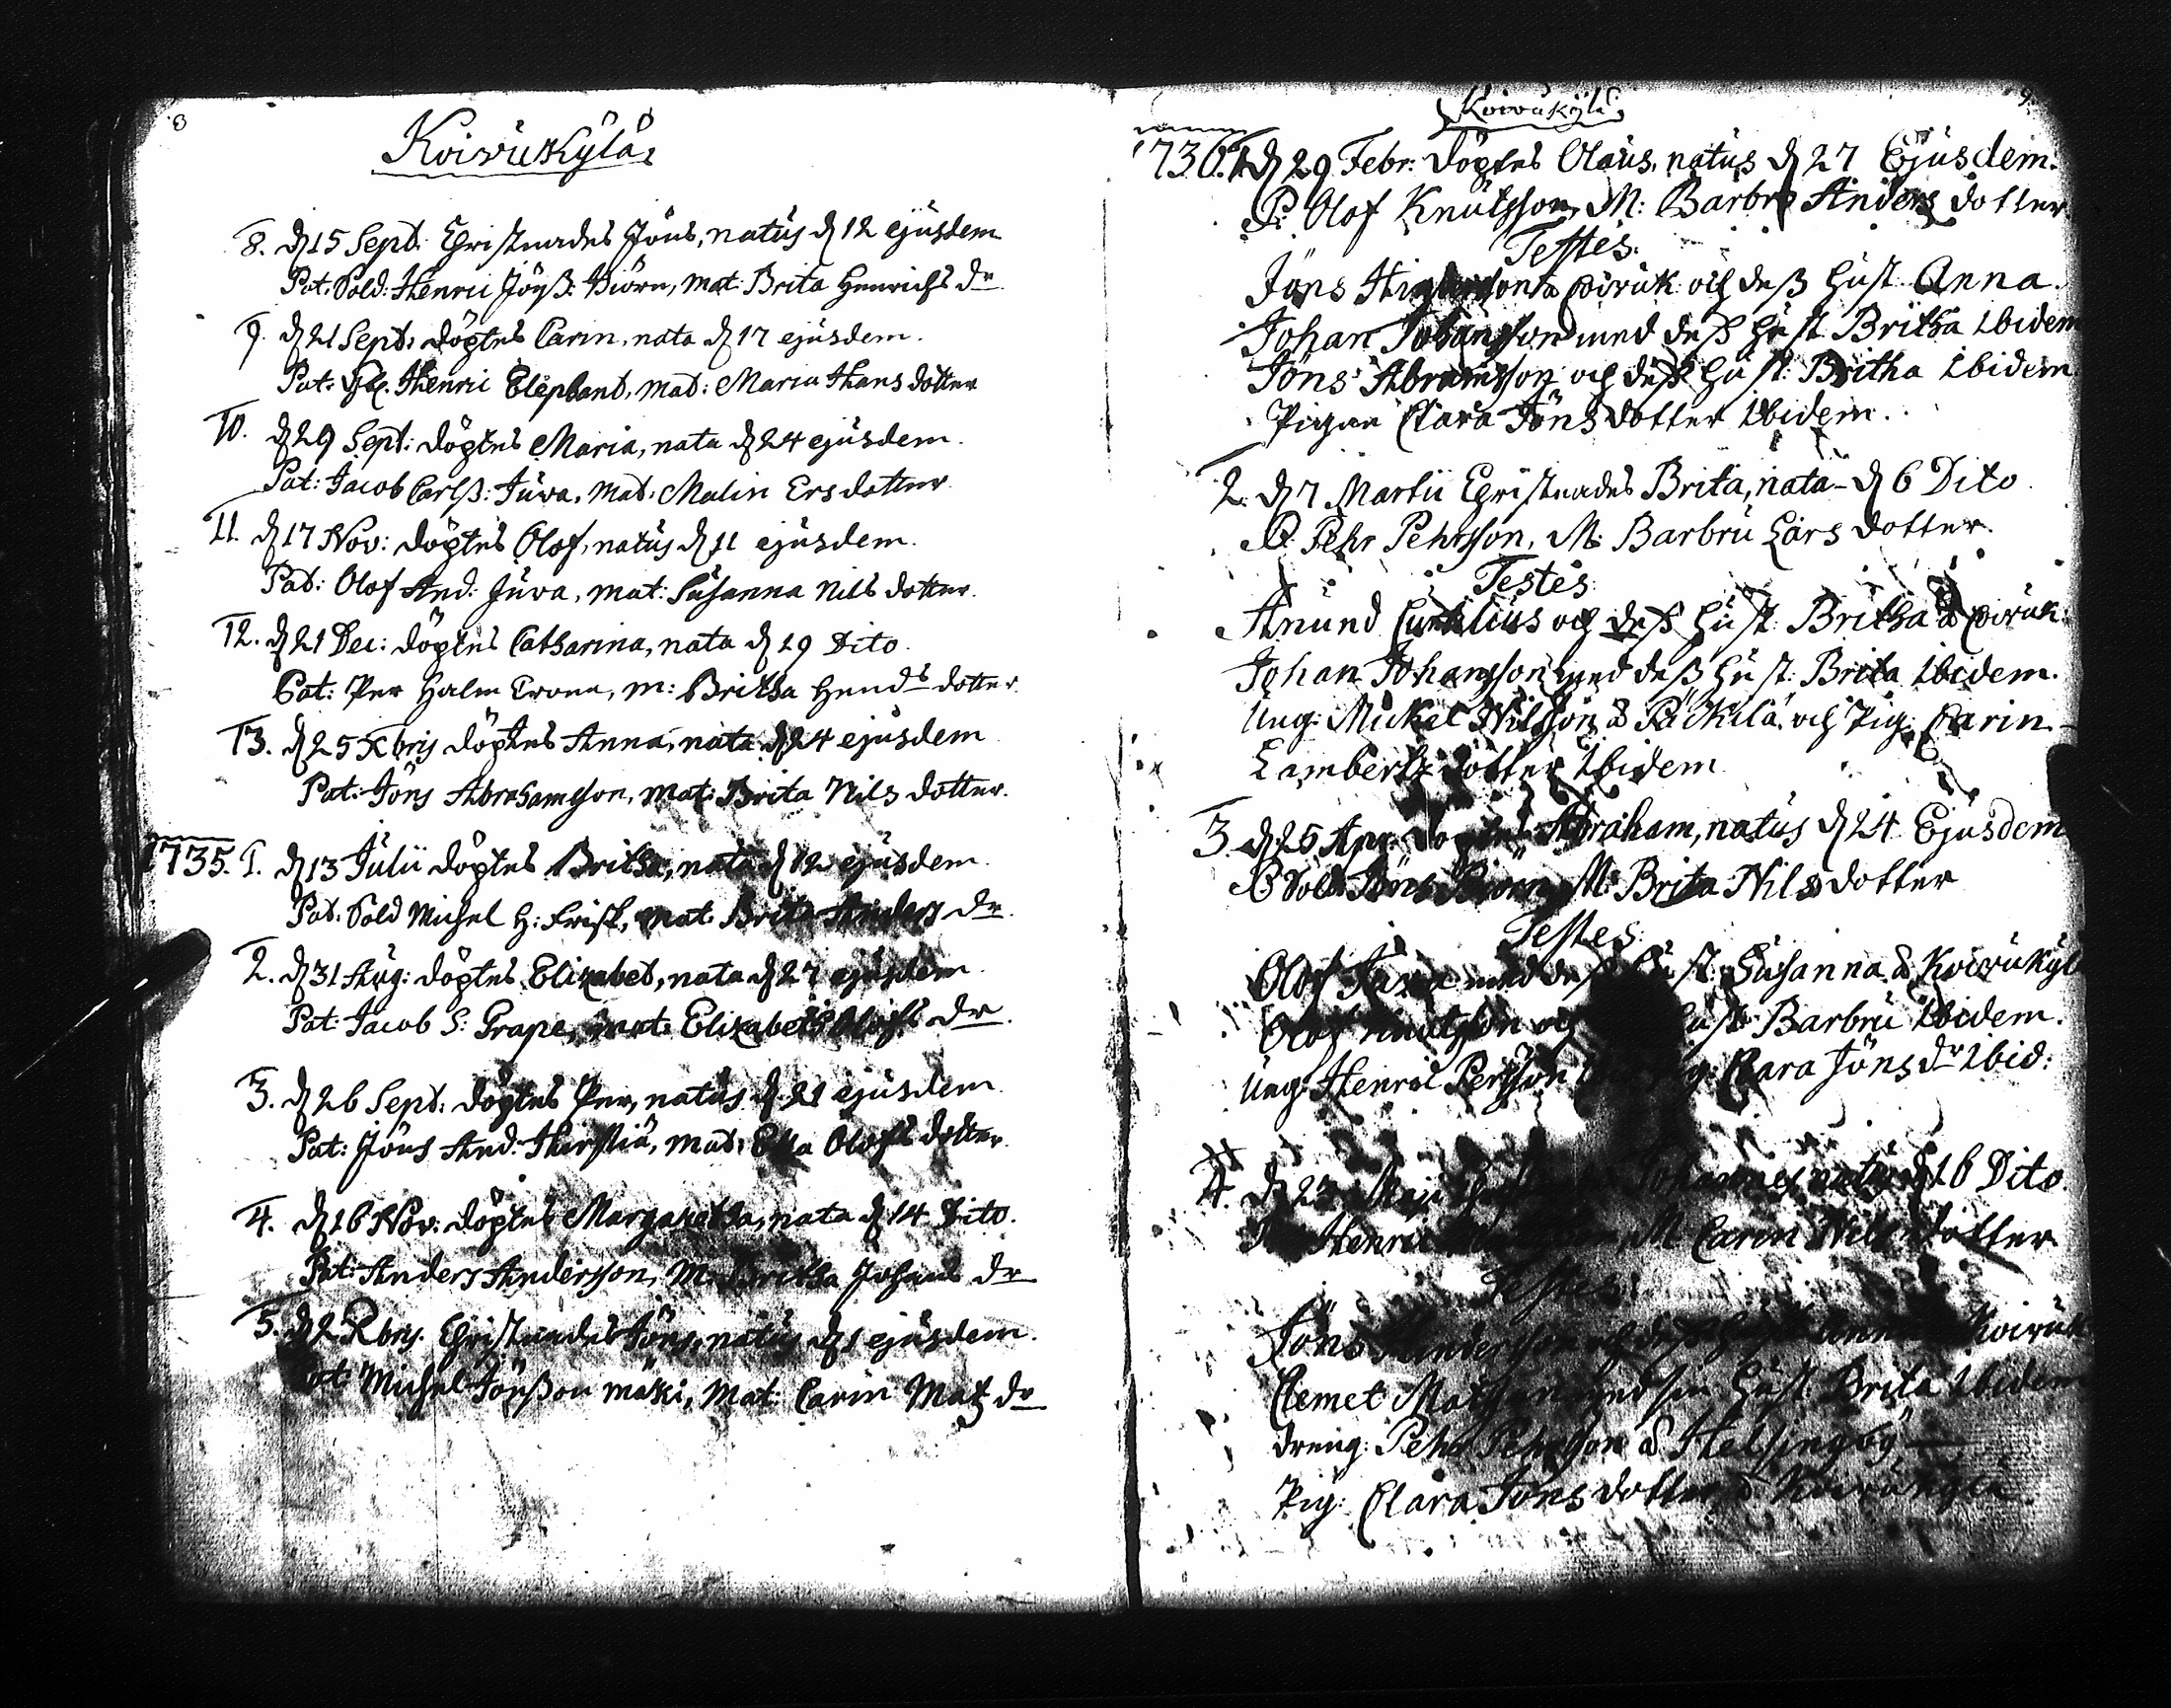 8
Koivukylä
8. d 15 Sept: Christnades Jöns, natus d 12 ejusdem
Pat: Sold: Henric Jönß: Biörn, mat: Brita Henrichs dr
9. d 21 Sept: döptes Carin, nata d 17 ejusdem.
Pat: Henric Elephant, mat: Maria Hans dotter
10. d 29 Sept: döptes Maria, nata d 24 ejusdem.
Pat: Jacob Carlß: Juva, mat: Malin Ers dotter
11. d 17 Nov: döptes Olof, natus d 11 ejusdem.
Pat: Olof And: Juva, mat: Susanna Nils dotter.
12. d 21 Dec: döptes Catharina, nata d 19 Dito.
Pat: Per Holm, m: Britha Hend:s dotter
13. d 25 Xbris döptes Anna, nata d 24 ejusdem
Pat: Jöns Abrahamsson, mat: Brita Nils dotter.
1735. 1. d 13 Julii döptes Britha, nata d 12 ejusdem.
Pat: Sold Michel H: Frisk, mat: Brita Anders dr.
2. d 31 Aug: döptes Elizabet, nata d 27 ejusdem.
Pat: Jacob S: Grape, mat: Elizabeth Olofs dr.
3. d 26 Sept: döptes Per, natus d 21 ejusdem.
Pat: Jöns And: mat: Olofs dotter.
4. d 16 Nov: döptes Margaretha, nata d 14 Dito.
Pat: Anders Andersson, M: Britha Johans dr
5. d 2 Xbris. Christnades Jöns, natus d 1 ejusdem.
Pat: Michel Jönßon mäki, Mat: Carin Matz dr
9.
Koivukylä
1736. 1. d 29 Febr: döptes Olaus, natus d 27 Ejusdem.
P: Olof Knutsson, M: Barbro Anders dotter
Testes:
Jöns å Koivuk: och deß Hust. Anna.
Johan Johansson med deß Hust. Britha Ibidem
Jöns Abramsson och deß Hust: Britha Ibidem
Pigan Clara Jöns dotter Ibidem.
2. d 7 Martii Christnades Brita, nata d 6 Dito.
P. Pehr Pehrsson, M: Barbru Lars dotter.
Testes:
Amund Curtelius och deß Hust: Britha å Koivuk:
Johan Johansson med deß Hust: Brita Ibidem.
Ung: Mickel Nilsson å Päckilä och Pig: Carin
Lambertz dotter Ibidem
3. d 25 Apr. döptes Abraham, natus d 24 Ejusdem
P. Sold: Jöns Biörn, M: Brita Nils dotter
Testes:
Olof Juva med deß Hust: Susanna å Koivukylä
Olof Knutsson och Hust: Barbru Ibidem.
Ung: Henric Persson Clara Jöns dr Ibid:
4. d 23 Maji Johannes, natus d 16 Dito
P. Henric M Carin Nils dotter
Testes:
Jöns Andersson och deß Hust Anna å Koivuk
Clemet Matsson med sin Hust: Brita Ibidem
dreng: Pehr Pehrsson å Helsingby
Pig: Clara Jöns dotter å Koivukylä.